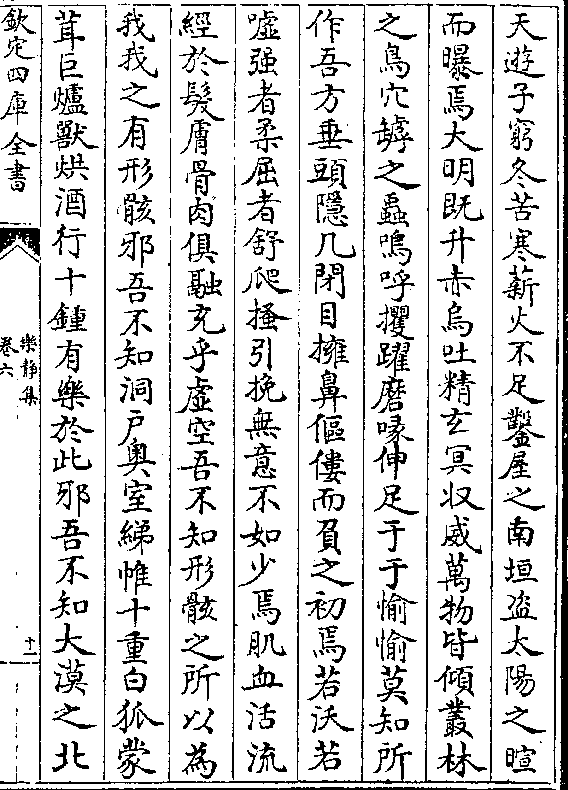 天遊子窮冬苦寒薪火不足鑿屋之南垣盗太陽之暄
而曝焉大明既升赤烏吐精玄冥収威萬物皆傾叢林
之鳥穴罅之蟲鳴呼攫躍磨喙伸足于于愉愉莫知所
作吾方垂頭隱几閉目擁鼻傴僂而負之初焉若沃若
嘘强者柔屈者舒爬搔引挽無意不如少焉肌血活流
經於髮膚骨肉俱融充乎虚空吾不知形骸之所以為
我我之有形骸邪吾不知洞戸奥室綈帷十重白狐蒙
茸巨爐獸烘酒行十鍾有樂於此邪吾不知大漠之北
欽定四庫全書
樂静集
卷六
十一